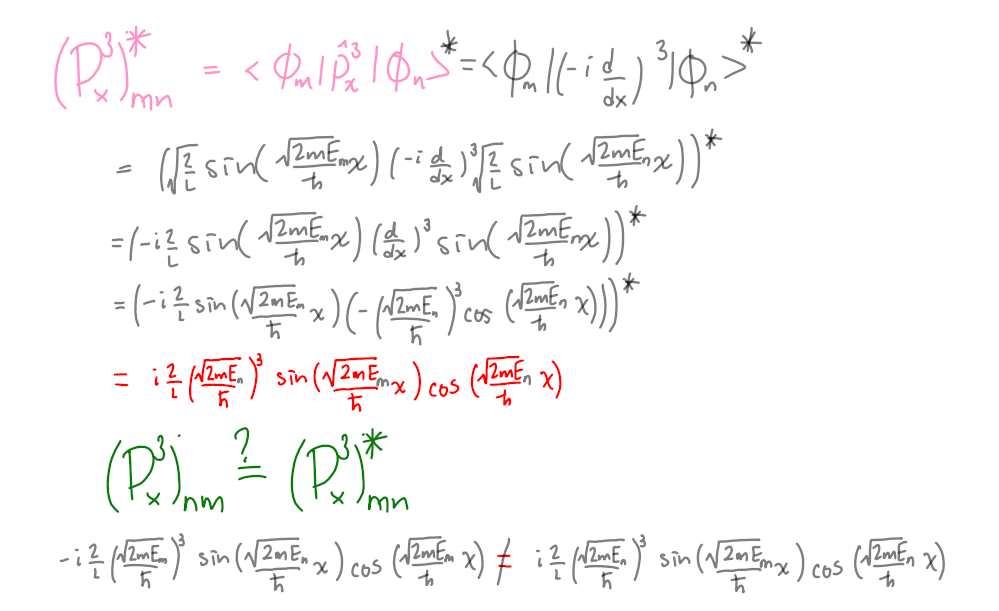 (P_x^3)^*_{mn} = <ϕ_m|p̂_x^3|ϕ_n>^* = <ϕ_m|(-i d/dx)^3|ϕ_n>^*
= (√(2/L) sin(√(2mE_m)/ħ x) (-i d/dx)^3 √(2/L) sin(√(2mE_n)/ħ x))^*
= (-i 2/L sin(√(2mE_m)/ħ x) (d/dx)^3 sin(√(2mE_n)/ħ x))^*
= (-i 2/L sin(√(2mE_m)/ħ x) (-(√(2mE_n)/ħ)^3 cos(√(2mE_n)/ħ x)))^*
= i 2/L (√(2mE_n)/ħ)^3 sin(√(2mE_m)/ħ x) cos(√(2mE_n)/ħ x)
(P_x^3)_{nm} ≟ (P_x^3)^*_{mn}
-i 2/L (√(2mE_m)/ħ)^3 sin(√(2mE_n)/ħ x) cos(√(2mE_m)/ħ x) ≠ i 2/L (√(2mE_n)/ħ)^3 sin(√(2mE_m)/ħ x) cos(√(2mE_n)/ħ x)